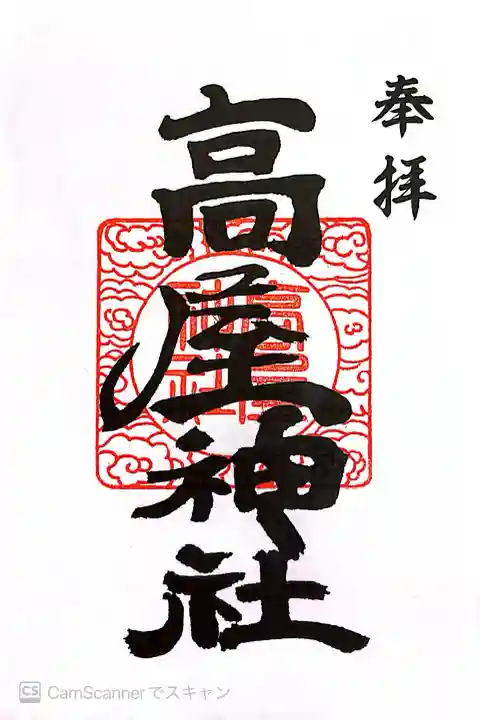 奉拝
高屋神社
CS CamScannerでスキャン